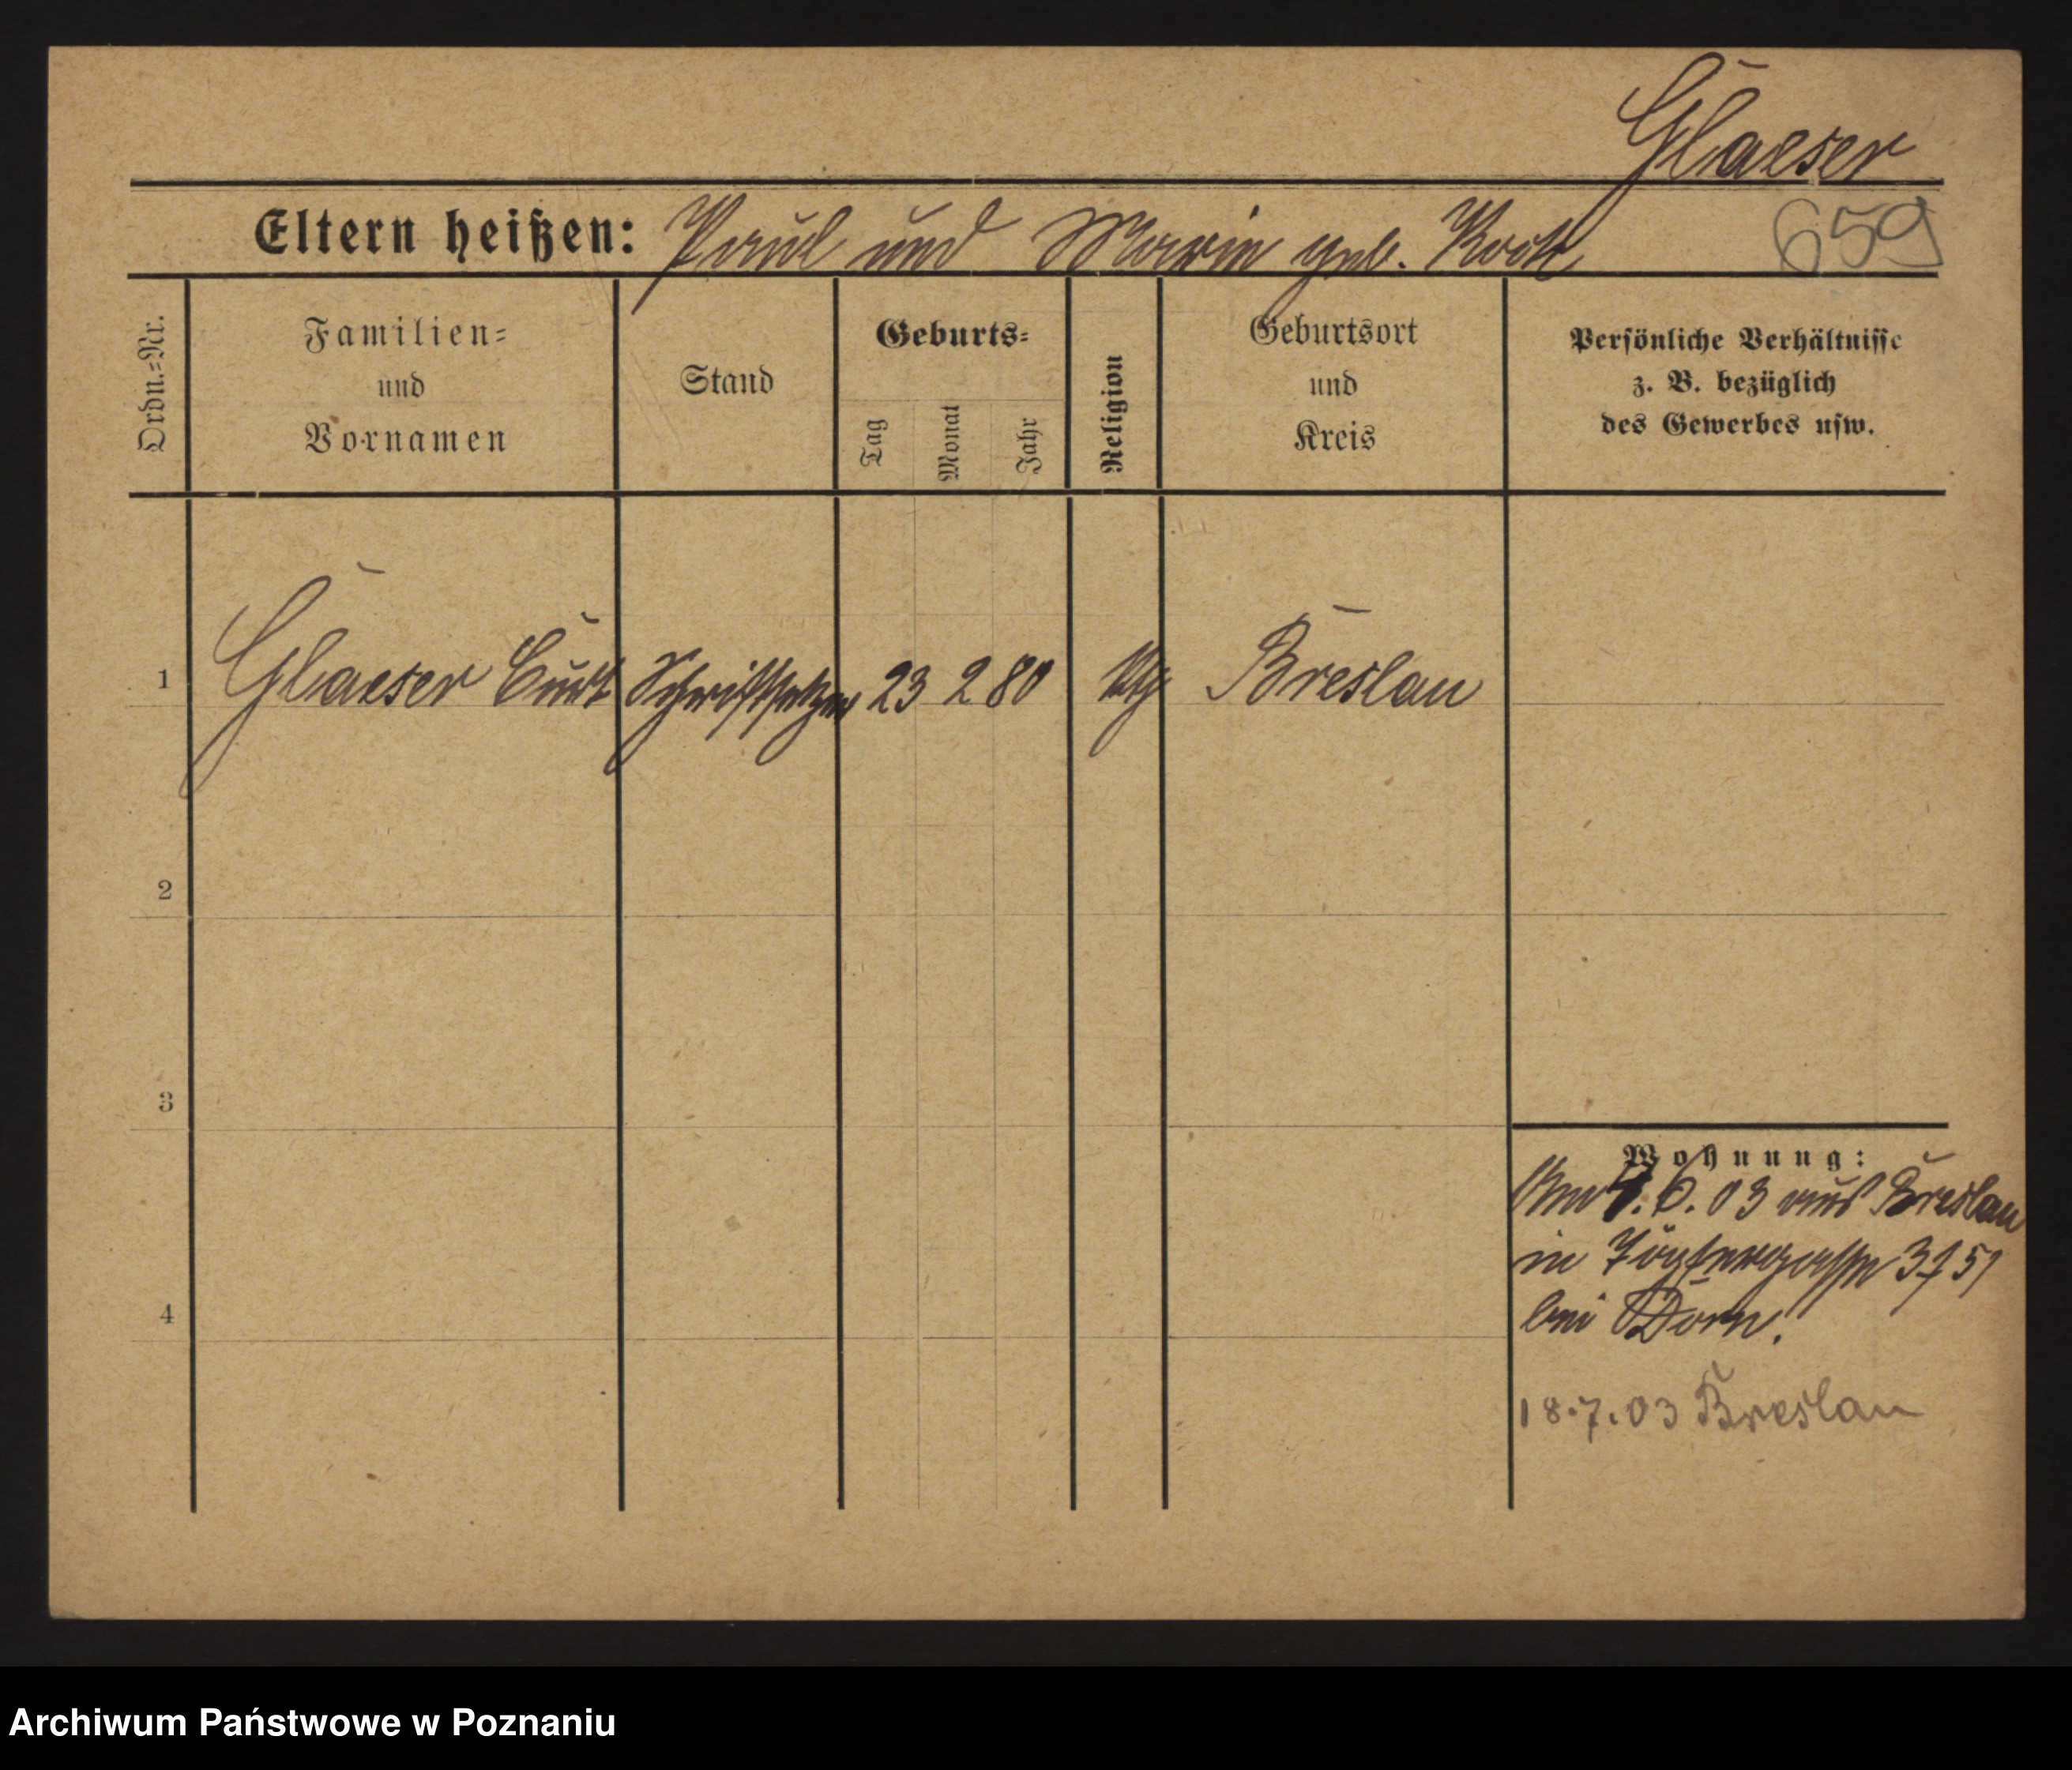 Glaeser
Eltern heißen: Paul und Marie geb. Kock
659
Ordn.-Nr.
Familien-
und
Vornamen
Stand
Geburts-
Tag
Monat
Jahr
Religion
Geburtsort
und
Kreis
Persönliche Verhältnisse
z. B. bezüglich
des Gewerbes usw.
1 Glaeser Curt Schriftsetzer 23 2 80 ktf Breslau
2
3
4
Wohnung:
Am 4.6.03 aus Breslau
in 37 51
bei Dorn.
18.7.03 Breslau
Archiwum Państwowe w Poznaniu